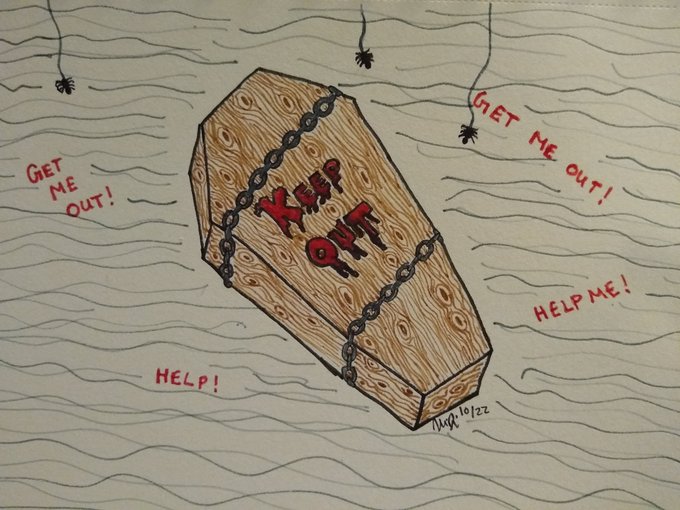 GET ME OUT!
GET
ME
OUT!
KEEP
OUT
HELP ME!
HELP!
10/22